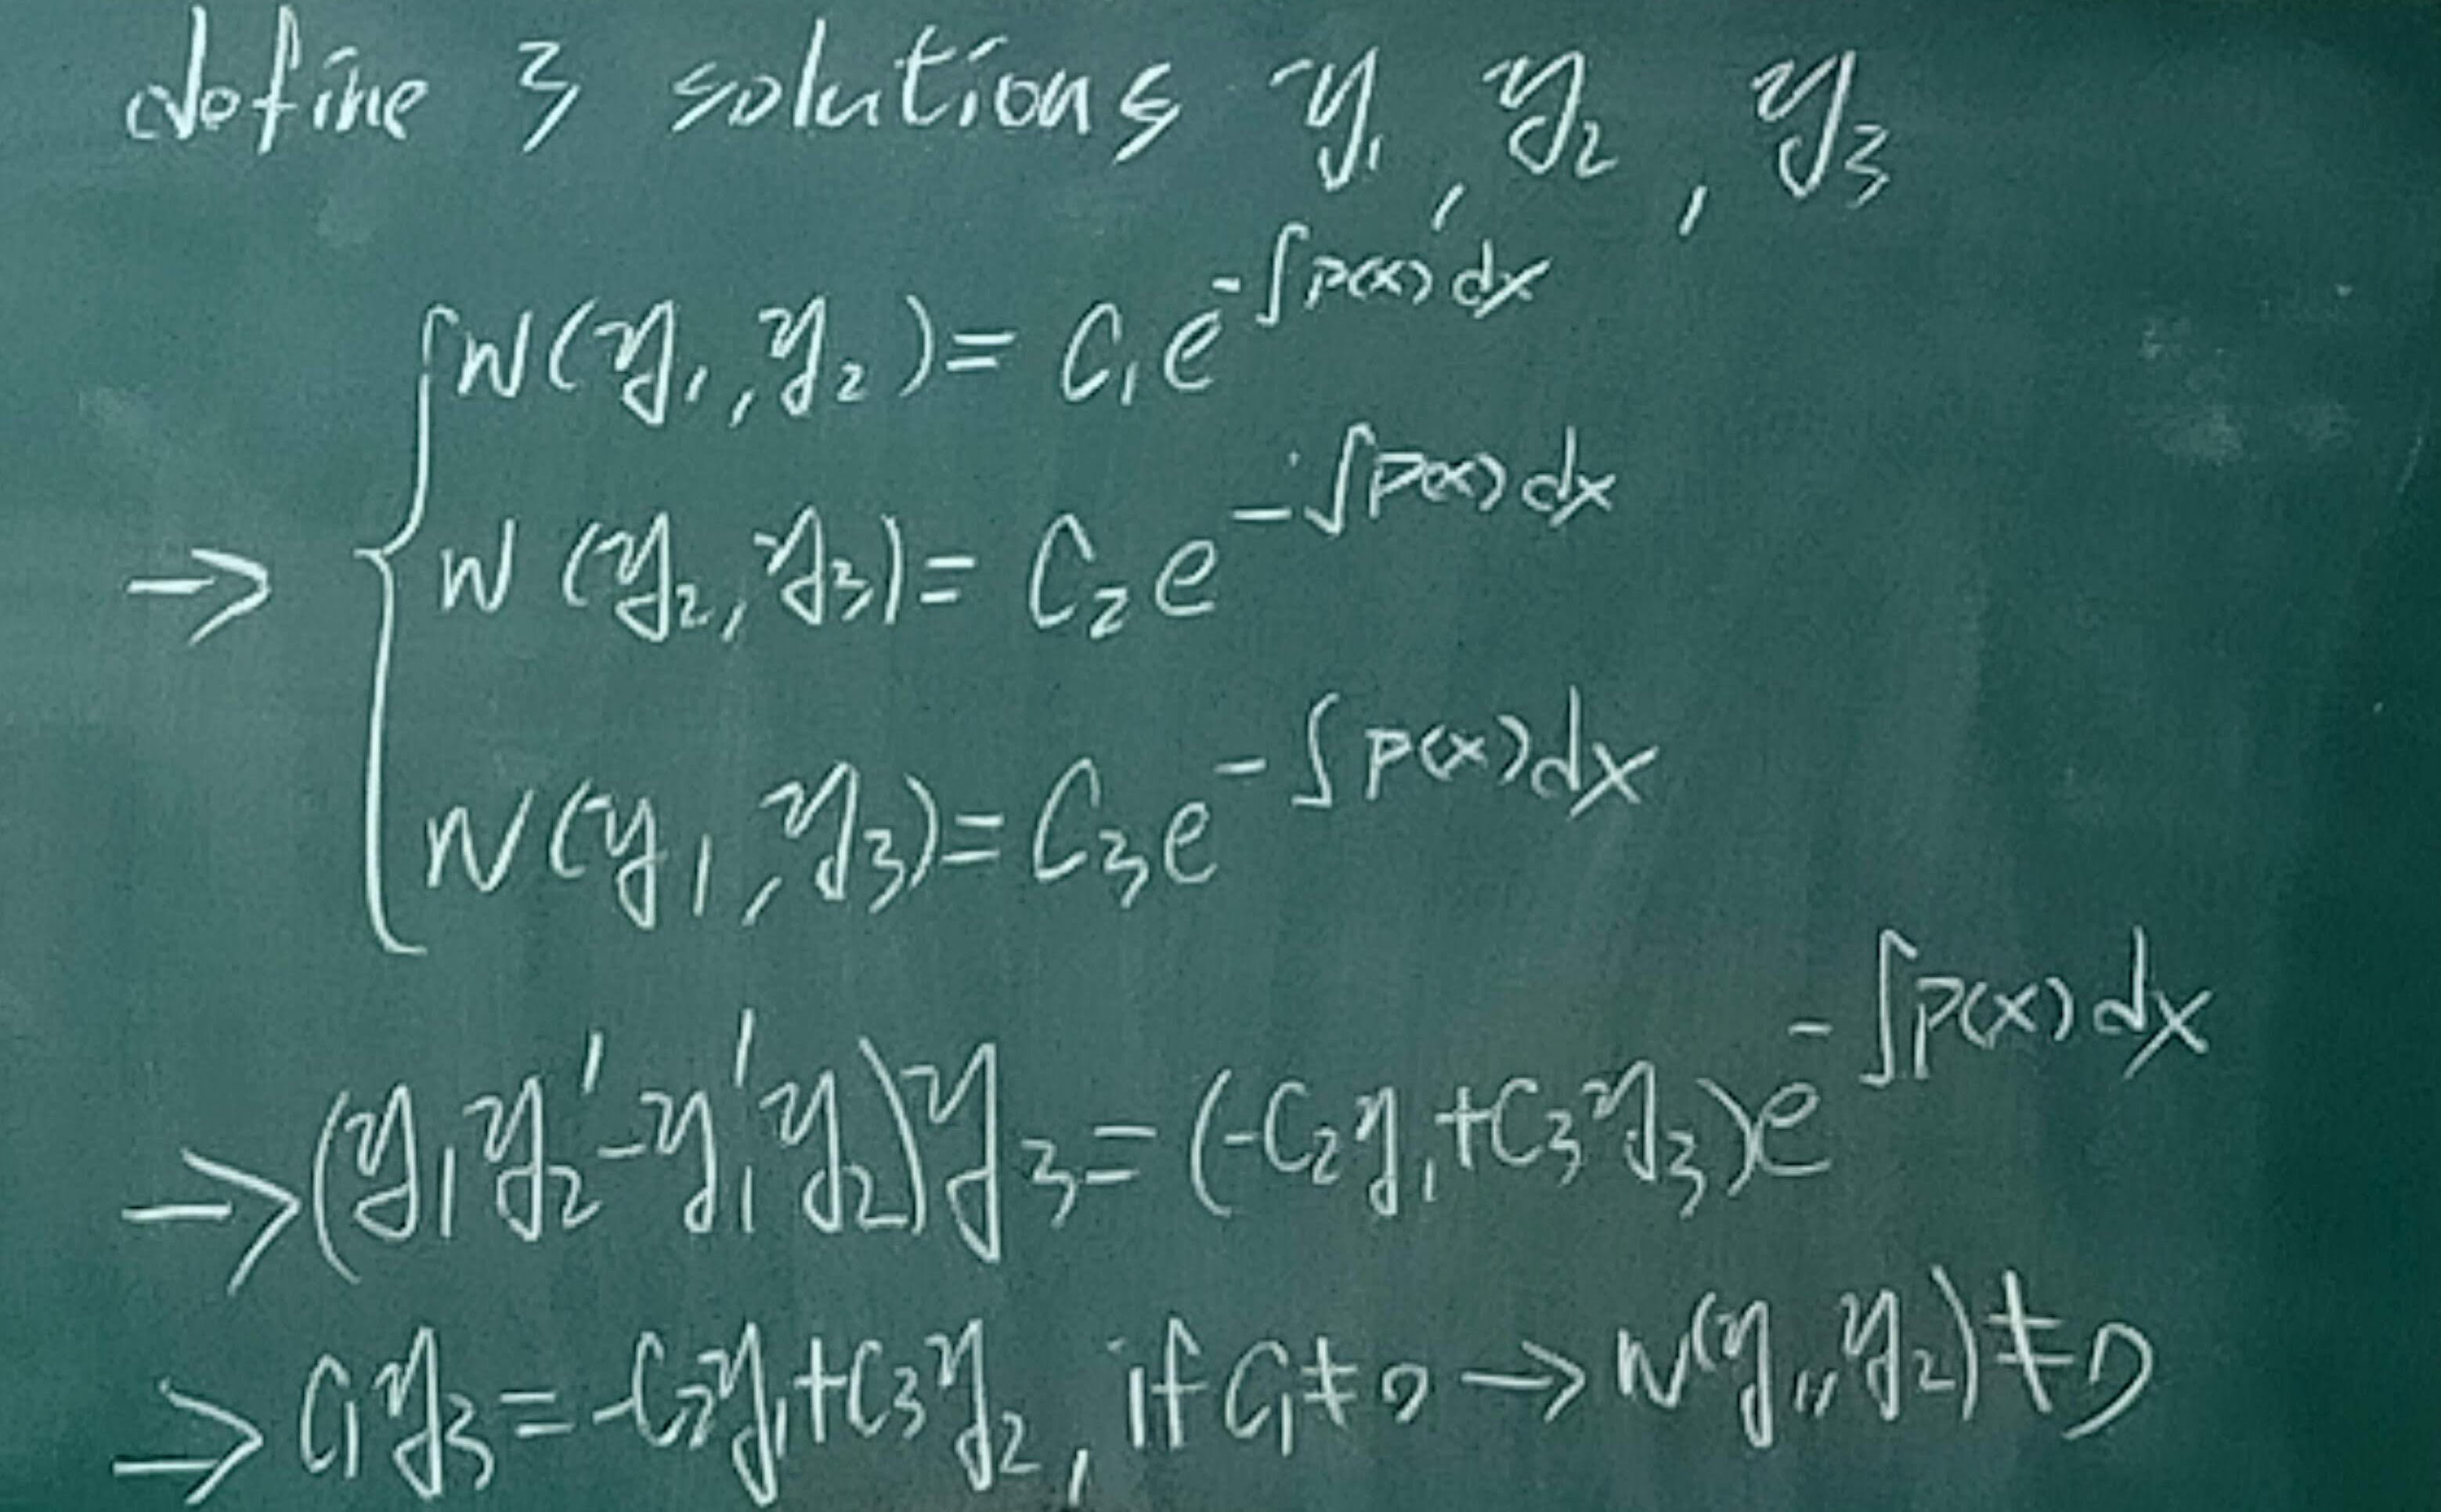 define 3 solutions y₁, y₂, y₃
W(y₁, y₂) = C₁e^{-∫p(x)dx}
→ { W(y₂, y₃) = C₂e^{-∫p(x)dx}
W(y₁, y₃) = C₃e^{-∫p(x)dx}
→ (y₁y₂' - y₁'y₂)y₃ = (-C₂y₁ + C₃y₃)e^{-∫p(x)dx}
→ C₁y₃ = -C₂y₁ + C₃y₂, if C₁ ≠ 0 → W(y₁, y₂) ≠ 0